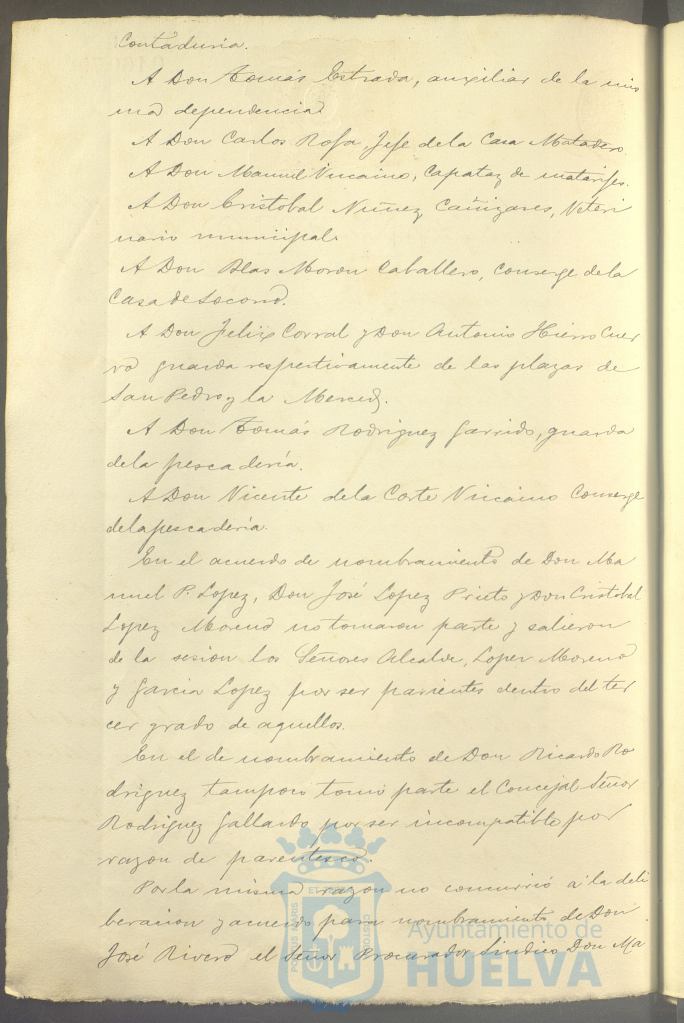 Contaduria.
A Don Tomás Estrada, auxiliar de la mis
ma dependencia
A Don Carlos Rofa, Jefe de la Casa Matadero
A Don Manuel Vizcaino, Capataz de matarifes.
A Don Cristobal Nuñez Cañizares, Veteri
nario municipal.
A Don Blas Moron Caballero, Conserge de la
Casa de Socorro.
A Don Felix Corral y Don Antonio Hierro Cuer
vo guarda respectivamente de las plazas de
San Pedro y la Merced.
A Don Tomás Rodriguez Garrido, guarda
de la pescadería.
A Don Vicente de la Corte Vizcaino Conserge
de la pescadería.
En el acuerdo de nombramiento de Don Ma
nuel P. Lopez, Don José Lopez Prieto y Don Cristobal
Lopez Moreno no tomaron parte y salieron
de la sesion los Señores Alcalde, Lopez Moreno
y Garcia Lopez por ser parientes dentro del ter
cer grado de aquellos.
En el de nombramiento de Don Ricardo Ro
driguez tampoco tomó parte el Concejal Señor
Rodriguez Gallardo por ser incompatible por
razon de parentesco.
Por la misma razon no concurrió á la deli
beracion y acuerdo para nombramiento de Don
José Rivero el Señor Procurador Sindico Don Ma
Ayuntamiento de
HUELVA